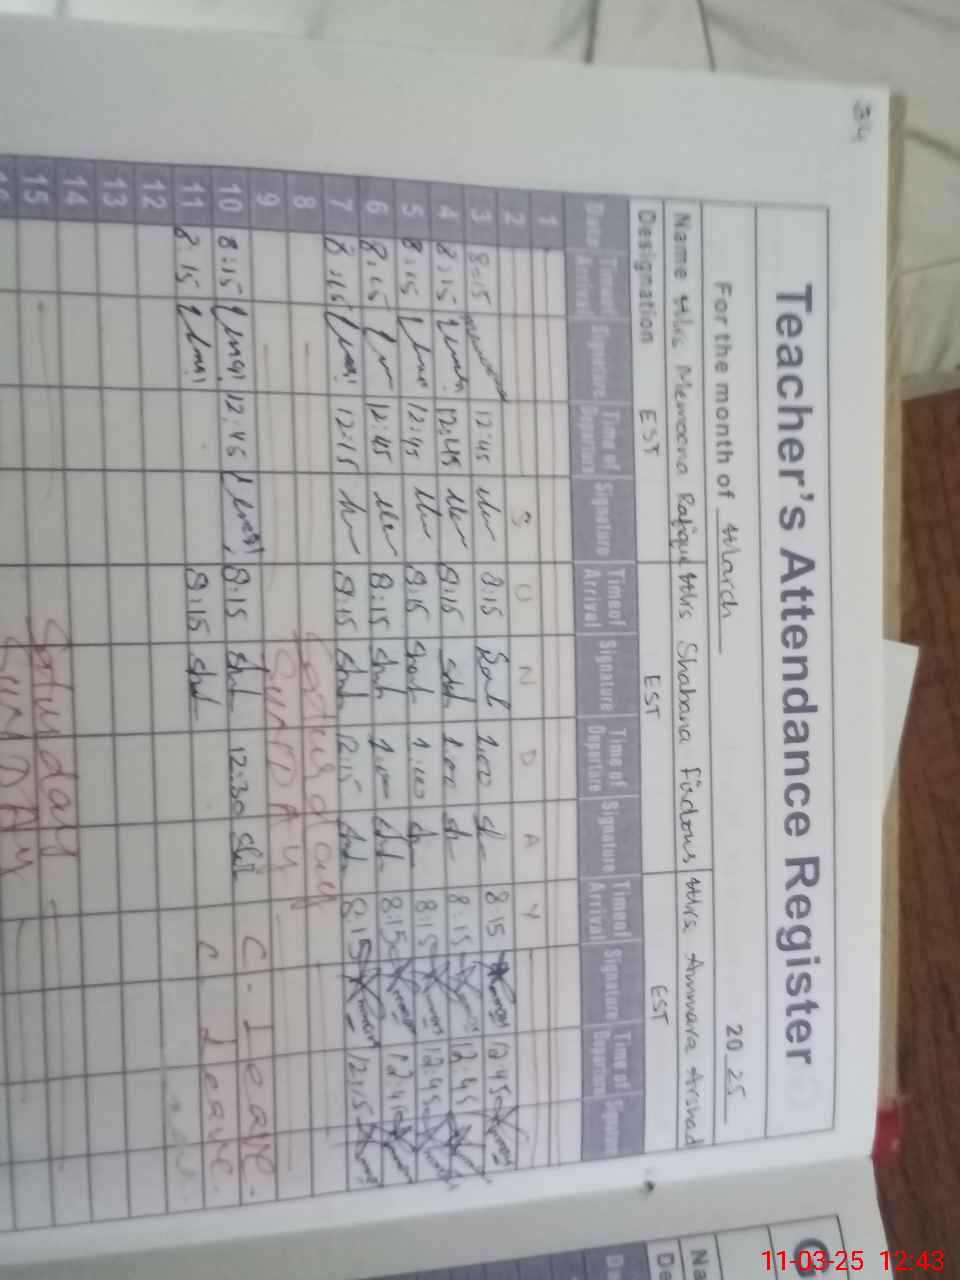 34
Teacher's Attendance Register
For the month of March 2025
Name Mrs Memoona Rafique Mrs Shabana Firdous Mrs. Ammara Arshad
Designation EST EST EST
Date Time of Arrival Signature Time of Departure Signature Time of Arrival Signature Time of Departure Signature Time of Arrival Signature Time of Departure Signature
1
2 S U N D A Y
3 8:15 12:45 8:15 1:00 8:15 12:45
4 8:15 12:45 8:15 1:00 8:15 12:45
5 8:15 12:45 8:15 1:00 8:15 12:45
6 8:15 12:45 8:15 1:00 8:15 12:45
7 8:15 12:15 8:15 12:15 8:15 12:15
8 Saturday
9 SUNDAY
10 8:15 12:45 8:15 12:30 C. Leave.
11 8:15 8:15 C Leave.
12
13
14
15 Saturday
16 SUNDAY
Na
De
11-03-25 12:43